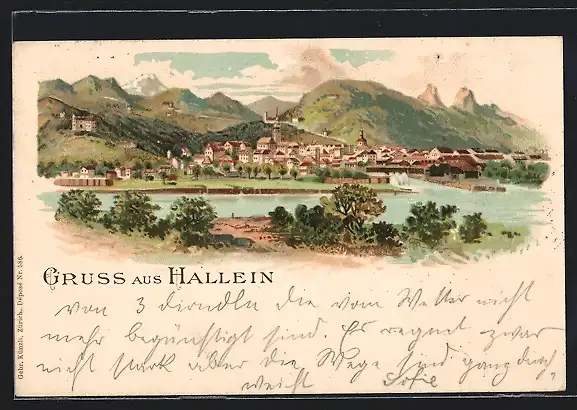 GRUSS AUS HALLEIN
von 3 dirndln die vom Wetter nicht
mehr begünstigt sind. Es regnet zwar
nicht stark aber die Wege sind ganz durch
weicht Sofie
Gebr. Künzli, Zürich. Déposé Nr. 586.